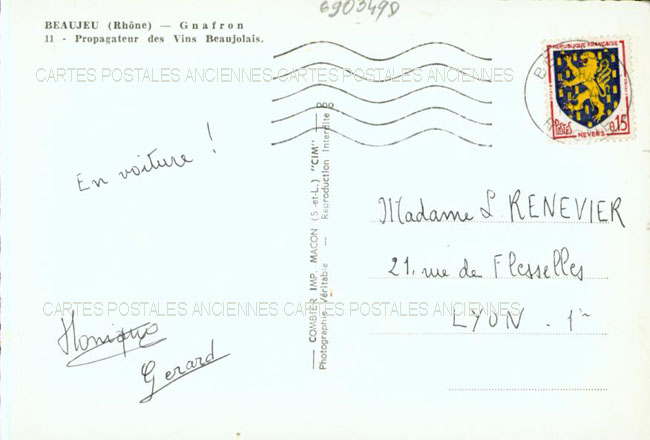 6903498
BEAUJEU (Rhône) — Gnafron
11 - Propagateur des Vins Beaujolais.
REPUBLIQUE FRANÇAISE
POSTES
0,15
NEVERS
CARTES POSTALES ANCIENNES CARTES POSTALES ANCIENNES
En voiture !
Monique
Gerard
COMBIER IMP. MACON (S.-et-L.) "CIM"
Photographie Véritable — Reproduction Interdite
Madame L. RENEVIER
21, rue de Flesselles
LYON . 1er
CARTES POSTALES ANCIENNES CARTES POSTALES ANCIENNES